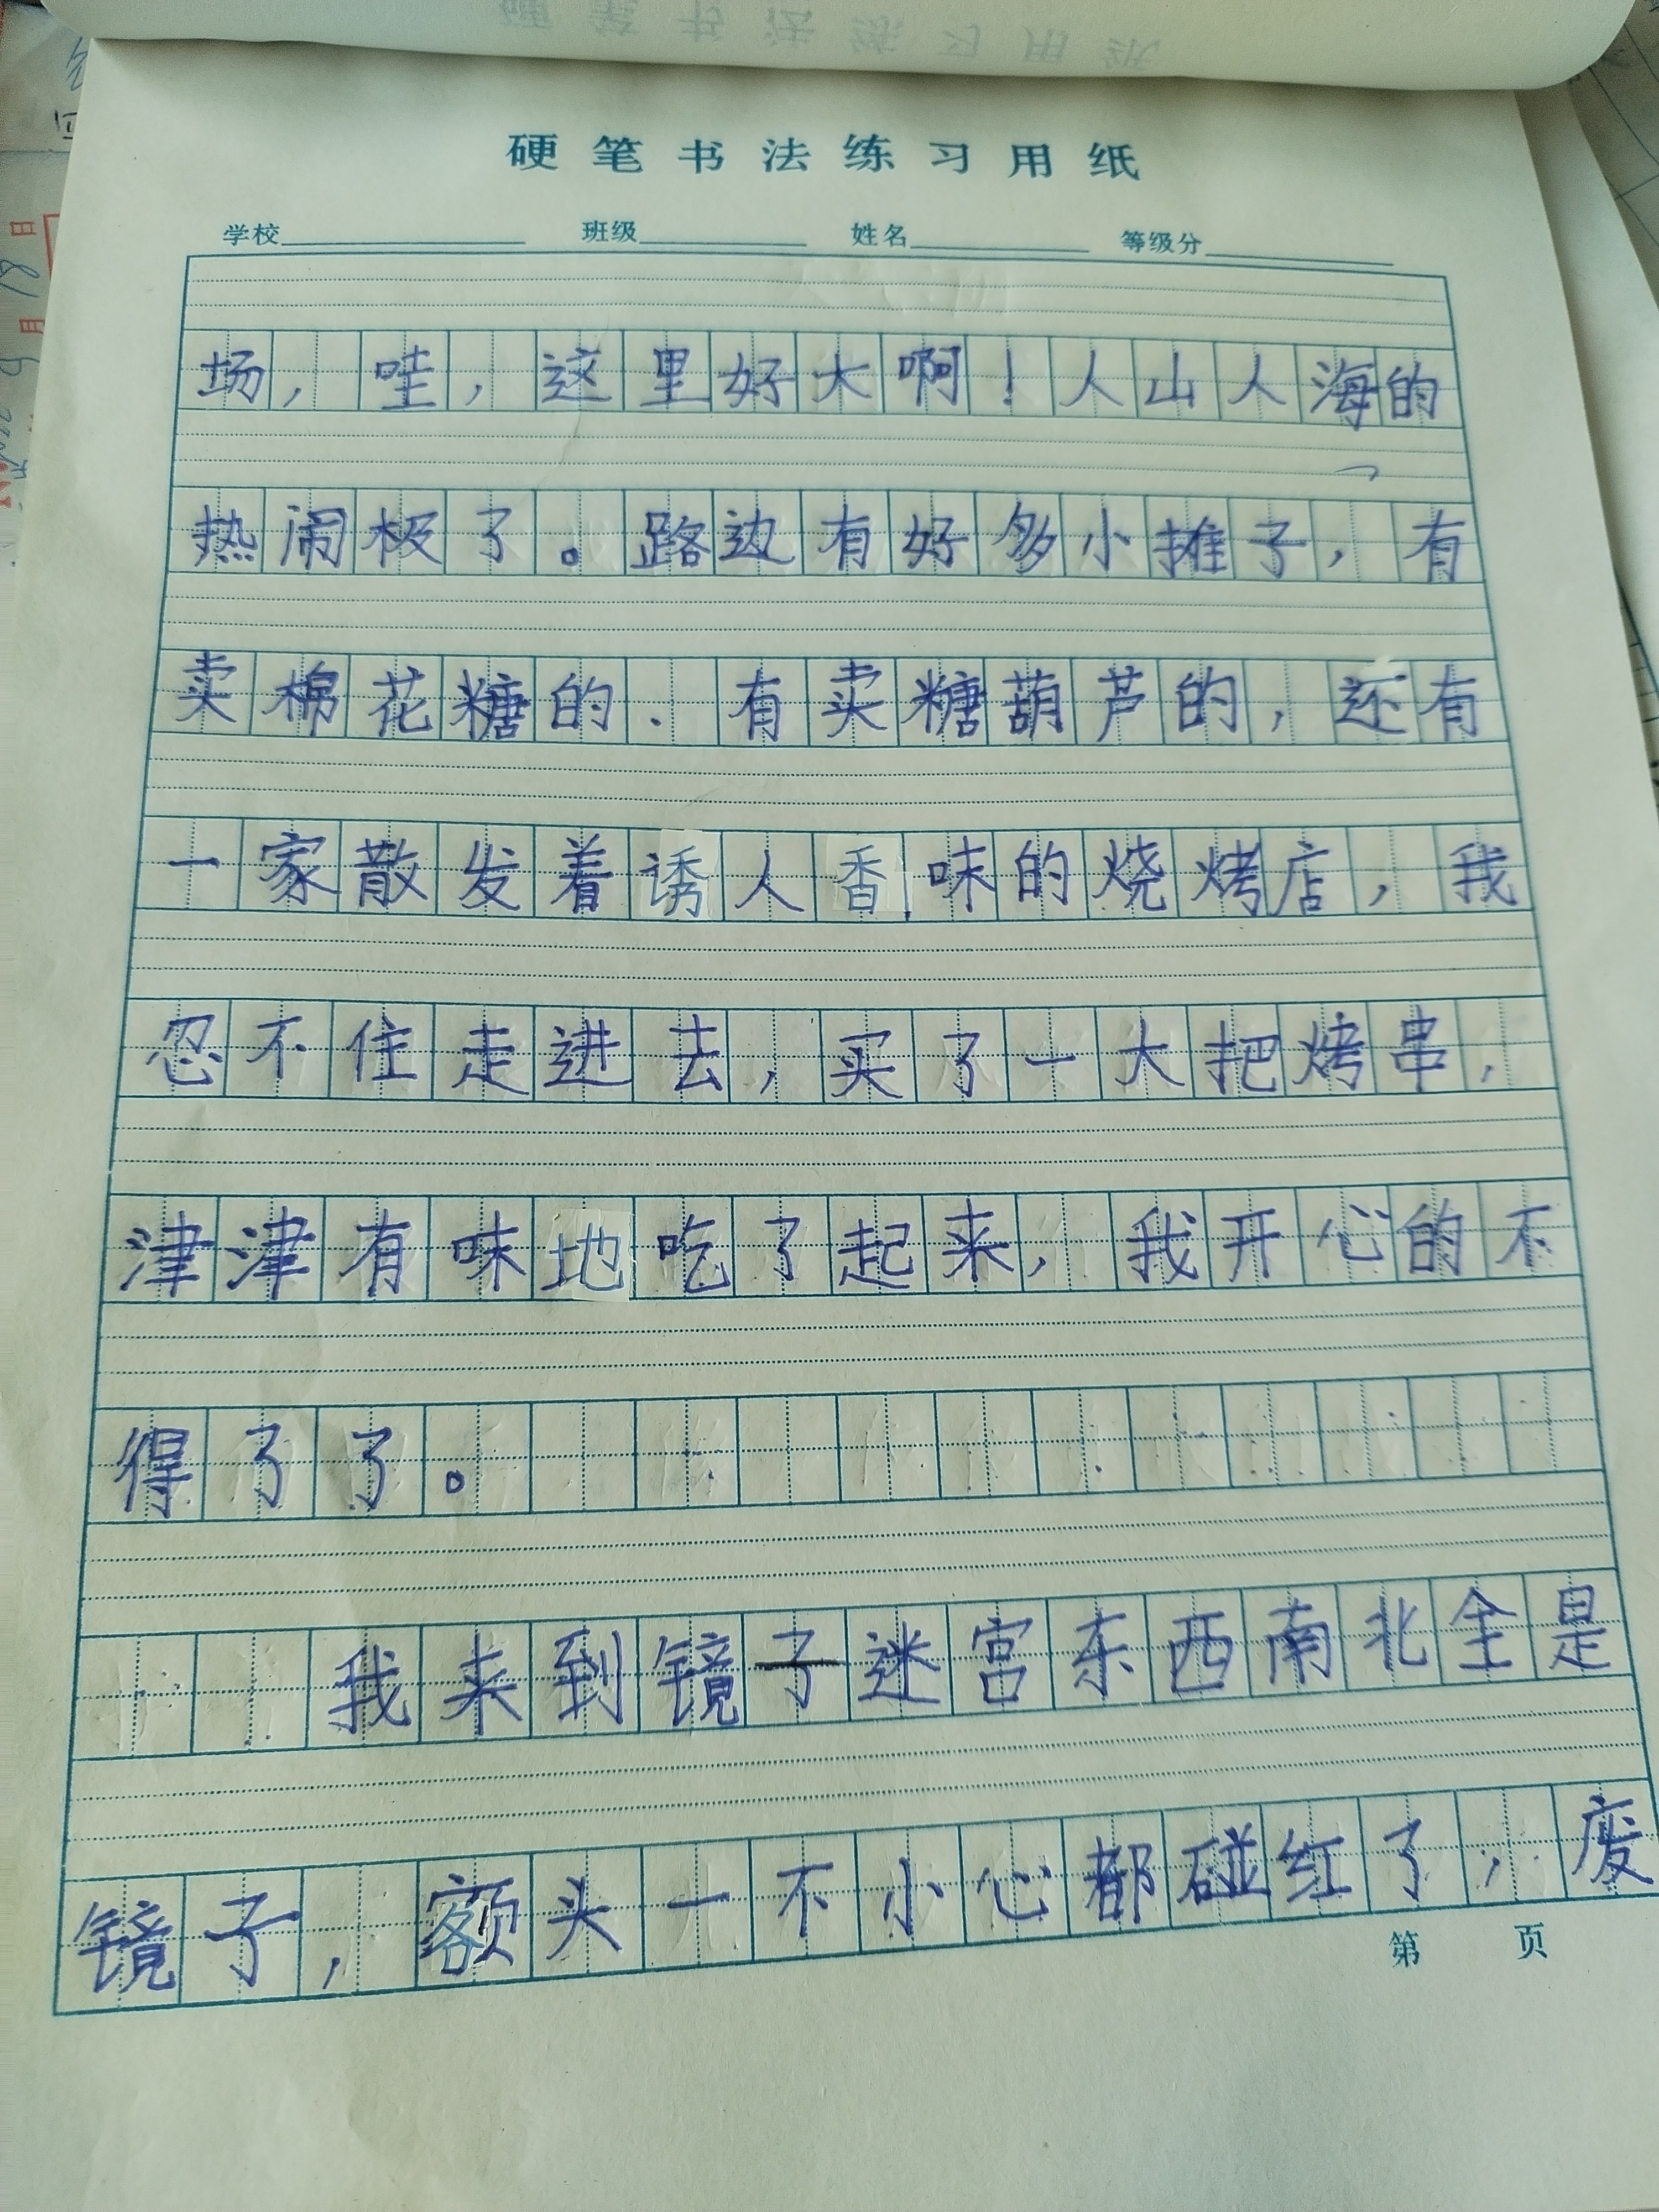 硬笔书法练习用纸
学校 班级 姓名 等级分
场，哇，这里好大啊！人山人海的
热闹极了。路边有好多小摊子，有
卖棉花糖的．有卖糖葫芦的，还有
一家散发着诱人香味的烧烤店，我
忍不住走进去，买了一大把烤串，
津津有味地吃了起来，我开心的不
得了了。
我来到镜子迷宫东西南北全是
镜子，额头一不小心都碰红了，废
第 页